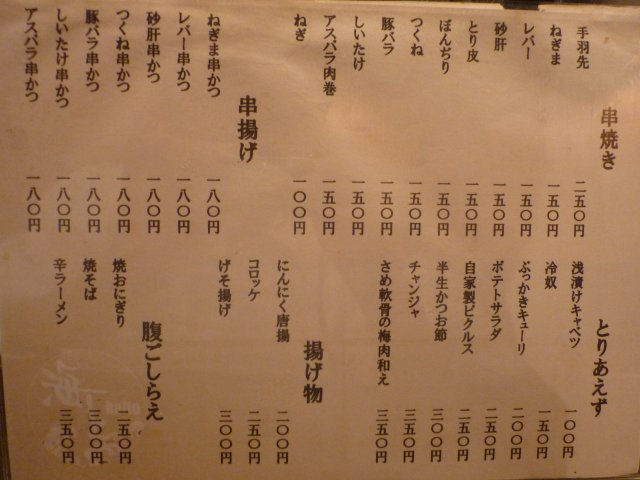 串焼き
手羽先 二五〇円
ねぎま 一五〇円
レバー 一五〇円
砂肝 一五〇円
とり皮 一五〇円
ぼんぢり 一五〇円
つくね 一五〇円
豚バラ 一五〇円
しいたけ 一五〇円
アスパラ肉巻 一五〇円
ねぎ 一〇〇円
串揚げ
ねぎま串かつ 一八〇円
レバー串かつ 一八〇円
砂肝串かつ 一八〇円
つくね串かつ 一八〇円
豚バラ串かつ 一八〇円
しいたけ串かつ 一八〇円
アスパラ串かつ 一八〇円
とりあえず
浅漬けキャベツ 一〇〇円
冷奴 一五〇円
ぶっかきキューリ 二〇〇円
ポテトサラダ 二五〇円
自家製ピクルス 二五〇円
半生かつお節 三〇〇円
チャンジャ 三五〇円
さめ軟骨の梅肉和え 三五〇円
揚げ物
にんにく唐揚 二〇〇円
コロッケ 二五〇円
げそ揚げ 三〇〇円
腹ごしらえ
焼おにぎり 二五〇円
焼そば 三〇〇円
辛ラーメン 三五〇円